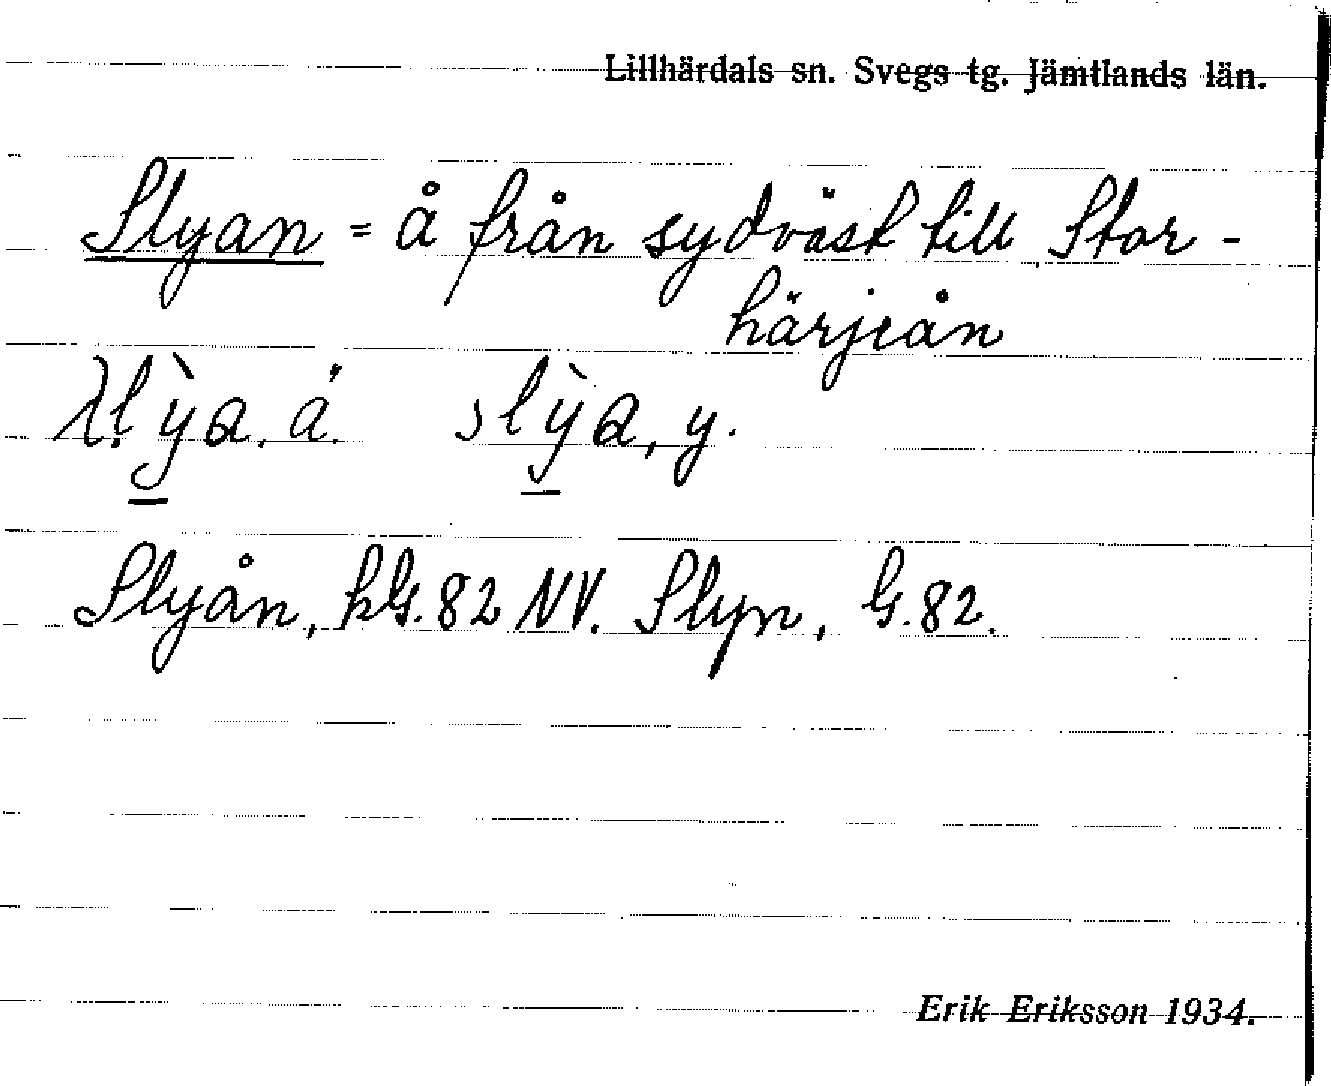 Lillhärdals sn. Svegs tg. Jämtlands län.
Slyan = å från sydväst till Stor-
härjeån
slỳa, y.
Slyån, kG. 82 NV. Slyn, G. 82.
Erik Eriksson 1934.